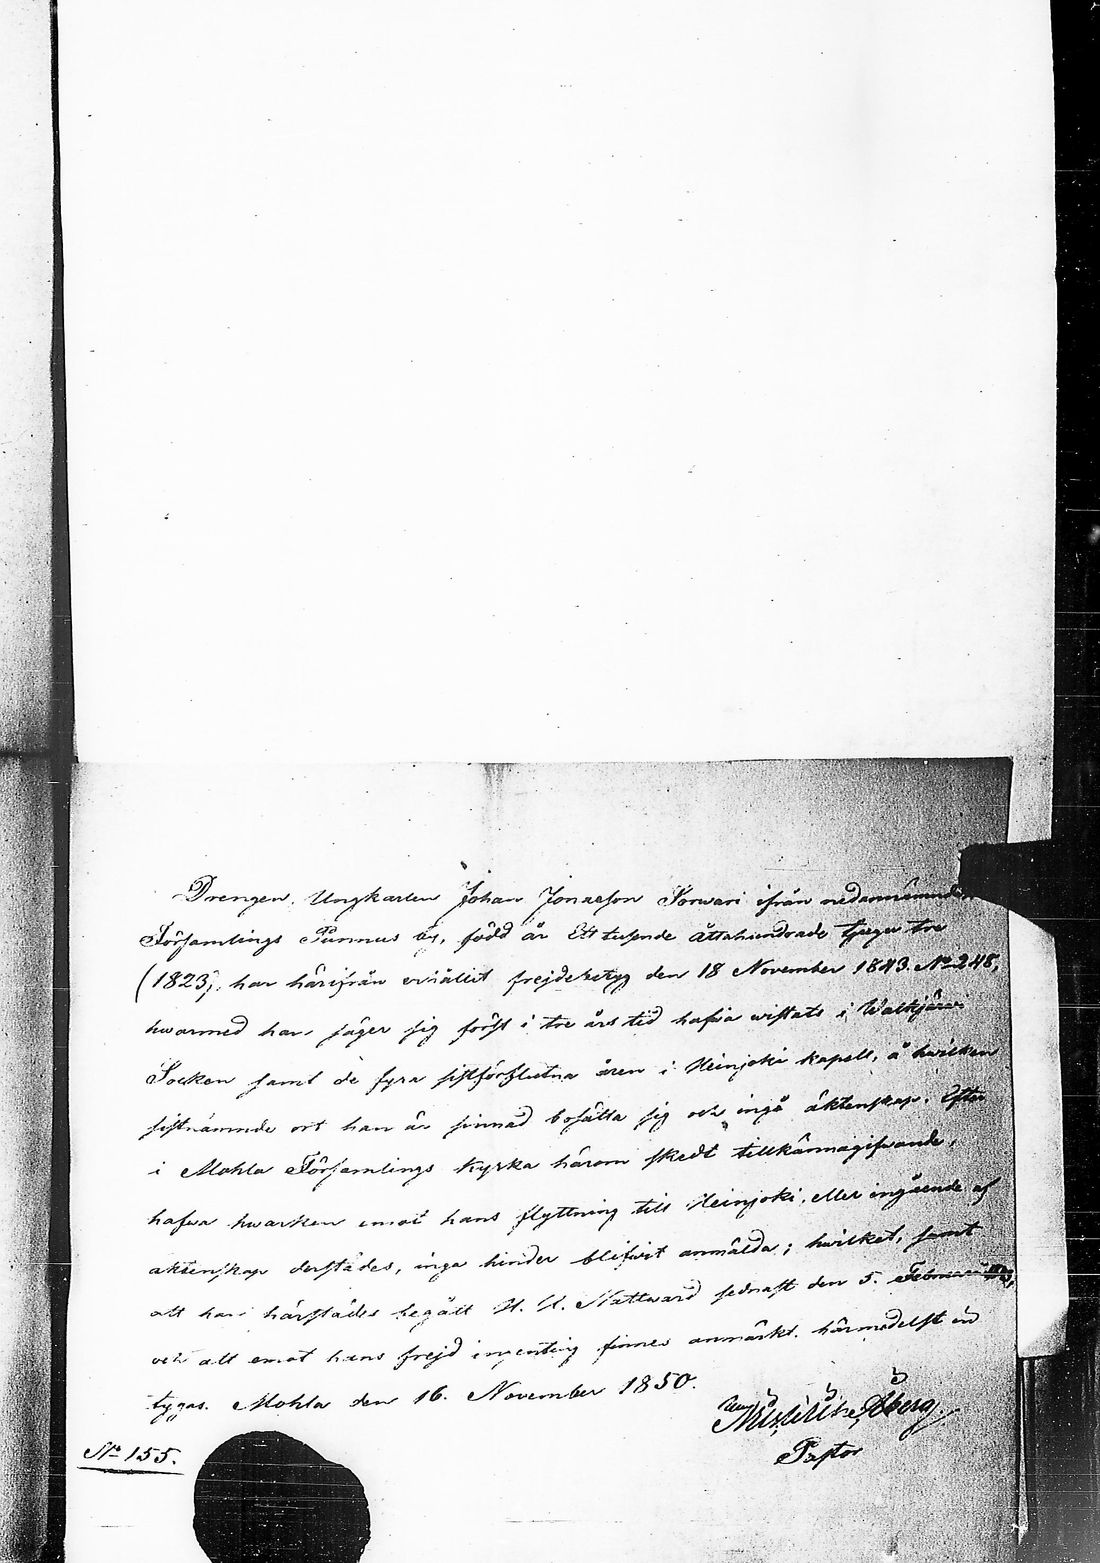 Drengen, Ungkarlen Johan Jonasson Sorwari ifrån nedannämnde
Församlings Punnus by, född år Ett tusende åttahundrade tjugu tre
(1823), har härifrån erhållit frejdebetyg den 18 November 1843. No 248,
hwarmed han säger sig först i tre års tid hafwa wistats i Walkjärwi
Socken samt de fyra sistförflutna åren i Heinjoki kapell, å hwilken
sistnämnde ort han är sinnad bosätta sig och ingå äktenskap. Efter
i Mohla Församlings kyrka härom skedt tillkännagifwande,
hafwa hwarken emot hans flyttning till Heinjoki, eller ingående af
äktenskap derstädes, inga hinder blifwit anmälda; hwilket, samt
att han härstädes begått H. H. Nattward sednast den 5. Februari
och att emot hans frejd ingenting finnes anmärkt, härmedelst be
tygas. Mohla den 16. November 1850.
Åberg
Pastor
No 155.